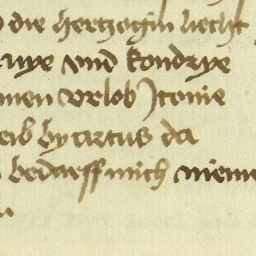 die hertzogin licht
vnd kondrye
men vrlob Jtonie
eib by artus da
bedarff mich nieme